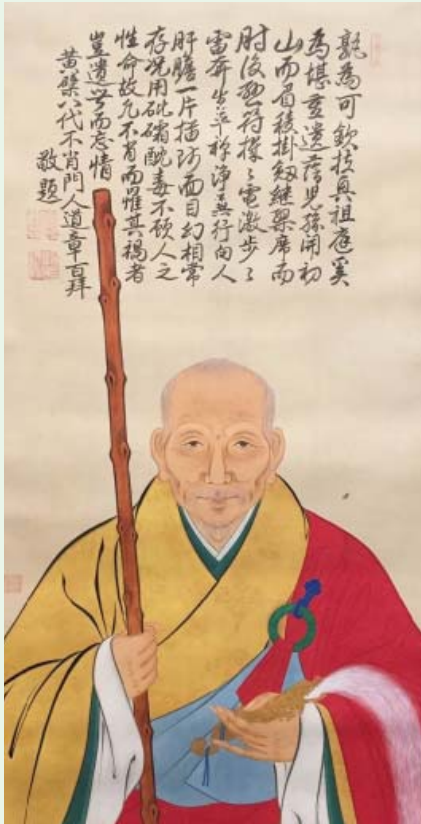 孰為可欽拉真祖庭奚
為堪重遺蔭兒孫開初
山而眉稜掛劔継檗席而
肘後懸符機〻電激步〻
雷奔生平神淨無行向人
肝膽一片描形面目幻相常
存況用砒礵酖毒不顧人之
性命故凡不肖而罹其禍者
豈遺世而忘情
黄檗八代不肖門人道章百拜
敬題